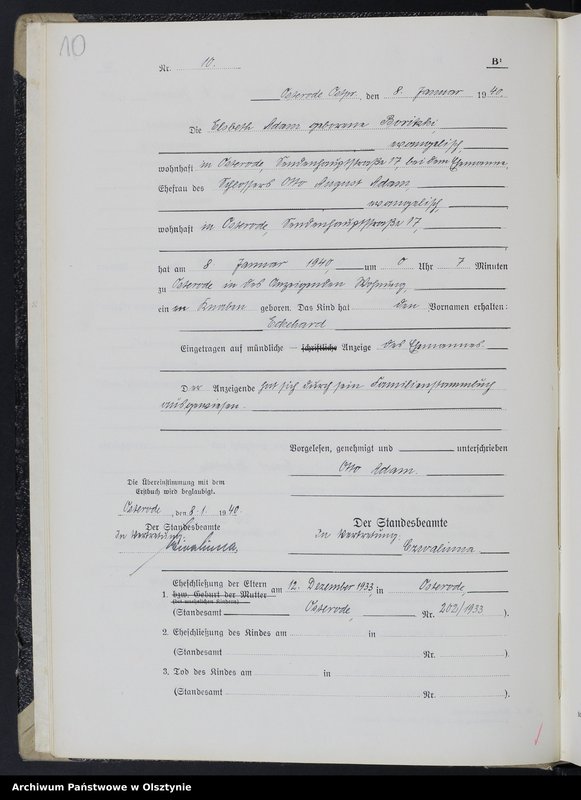 10
Nr. 10. B¹
Osterode Ostpr., den 8. Januar 1940.
Die Elsbeth Adam geborene
evangelisch,
wohnhaft in Osterode, Sendenhauptstraße 17, bei dem Ehemanne,
Ehefrau des Schlossers Otto August Adam,
evangelisch,
wohnhaft in Osterode, Sendenhauptstraße 17,
hat am 8 Januar 1940, um 0 Uhr 7 Minuten
zu Osterode in des Anzeigenden Wohnung,
ein en Knaben geboren. Das Kind hat den Vornamen erhalten:
Eckehard
Eingetragen auf mündliche – schriftliche Anzeige des Ehemannes
Der Anzeigende hat sich durch sein Familienstammbuch
ausgewiesen.
Vorgelesen, genehmigt und unterschrieben
Otto Adam.
Die Übereinstimmung mit dem
Erstbuch wird beglaubigt.
Osterode, den 8. 1. 1940.
Der Standesbeamte
In Vertretung
Der Standesbeamte
In Vertretung:
1. Eheschließung der Eltern
bzw. Geburt der Mutter
(bei unehelichen Kindern)
am 12. Dezember 1933, in Osterode,
(Standesamt Osterode, Nr. 202/1933 ).
2. Eheschließung des Kindes am in
(Standesamt Nr. ).
3. Tod des Kindes am in
(Standesamt Nr. ).
Archiwum Państwowe w Olsztynie